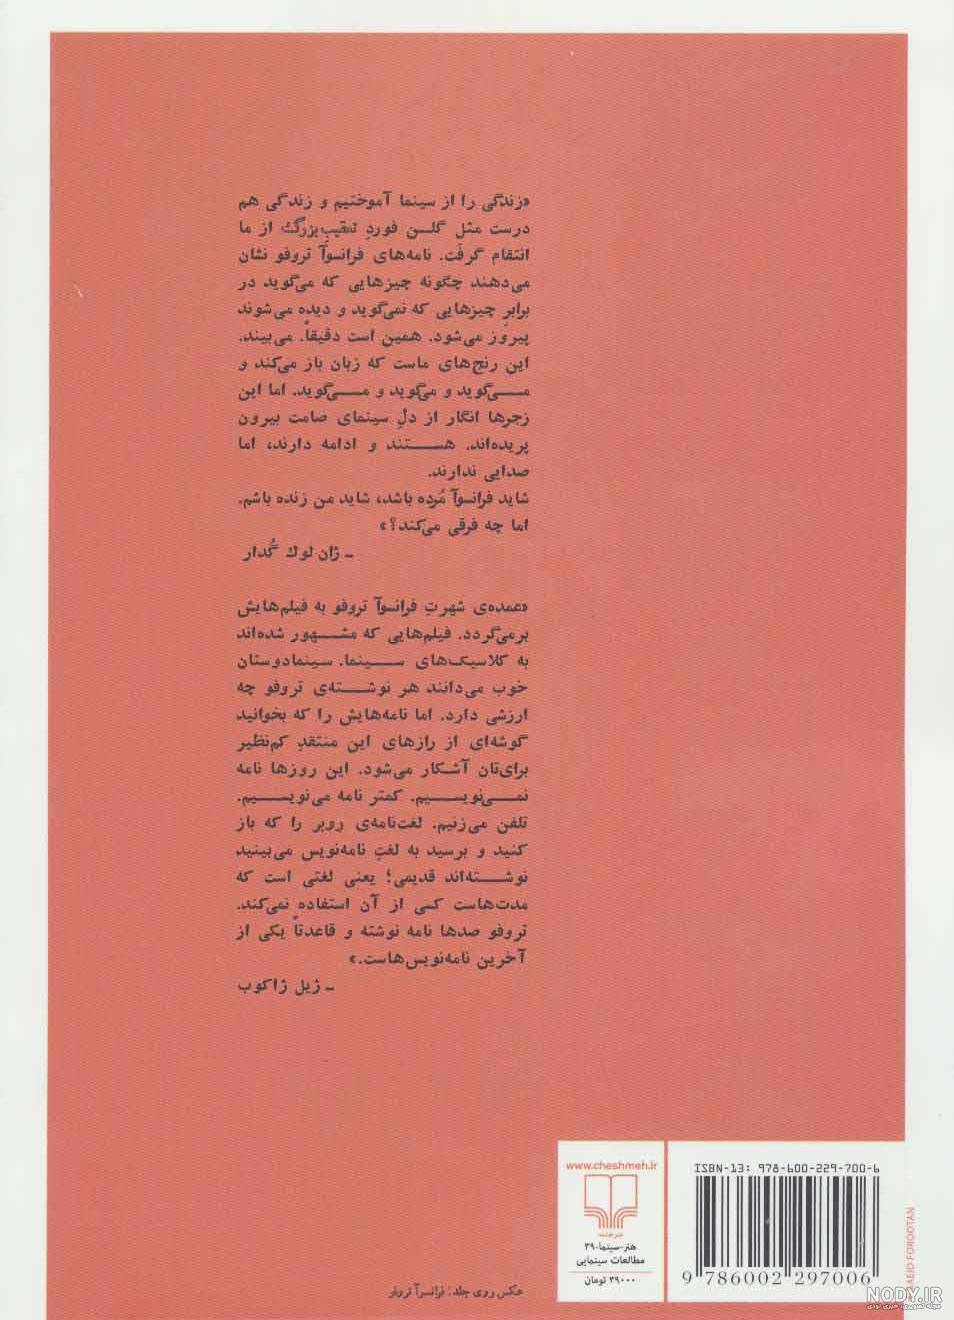 «زندگی را از سینما آموختیم و زندگی هم
درست مثل گلـن فوردِ تعقیبِ‌بزرگ از ما
انتقام گرفت. نامه‌های فرانسوآ تروفو نشان
می‌دهند چگونه چیزهایی که می‌گوید در
برابرِ چیزهایی که نمی‌گوید و دیده می‌شوند
پیروز می‌شود. همین است دقیقاً. می‌بیند.
این رنج‌های ماست که زبان باز می‌کند و
مـــی‌گوید و می‌گوید و مـــی‌گوید. اما این
زجرها انگار از دلِ سینمای صامت بیرون
پریده‌اند. هســـتند و ادامه دارند، اما
صدایی ندارند.
شاید فرانسوآ مُرده باشد، شاید من زنده باشم.
اما چه فرقی می‌کند؟»
ـ ژان لوک گُدار
«عمده‌ی شهرتِ فرانسوآ تروفو به فیلم‌هایش
برمی‌گردد. فیلم‌هایی که مشـــهور شده‌اند
به کلاسیک‌های ســـینما. سینمادوستان
خوب می‌دانند هر نوشـــته‌ی تروفو چه
ارزشی دارد. اما نامه‌هایش را که بخوانید
گوشه‌ای از رازهای این منتقدِ کم‌نظیر
برای‌تان آشـکار می‌شود. این روزها نامه
نمـــی‌نویســـیم. کمتر نامه می‌نویســـیم.
تلفن می‌زنیم. لغت‌نامه‌ی روبر را که باز
کنید و برسید به لغتِ نامه‌نویس می‌بینید
نوشـــته‌اند قدیمی؛ یعنی لغتی است که
مدت‌هاست کسی از آن استفاده نمی‌کند.
تروفو صدها نامه نوشته و قاعدتاً یکی از
آخرین نامه‌نویس‌هاست.»
ـ ژیل ژاکوب
www.cheshmeh.ir
نشرچشمه
هنر-سینما-۳۹
مطالعات سینمایی
۳۹۰۰۰ تومان
ISBN-13: 978-600-229-700-6
9 786002 297006
SAEID FOROOTAN
عکس روی جلد: فرانسوآ تروفو
NODY.IR